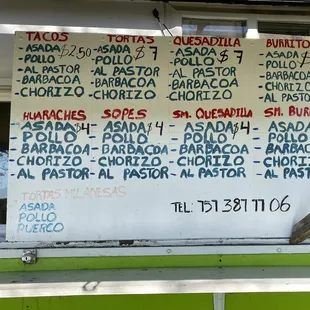 TACOS TORTAS QUESADILLA BURRITO
-ASADA $2.50 -ASADA $7 -ASADA $7 -ASADA
-POLLO -POLLO -POLLO -POLLO
-AL PASTOR -AL PASTOR -AL PASTOR -AL PASTOR
-BARBACOA -BARBACOA -BARBACOA -BARBACOA
-CHORIZO -CHORIZO -CHORIZO -CHORIZO
HUARACHES SOPES SM. QUESADILLA SM. BUR
-ASADA $4 -ASADA $4 -ASADA $4 -ASADA
-POLLO -POLLO -POLLO -POLLO
-BARBACOA -BARBACOA -BARBACOA -BARBACOA
-CHORIZO -CHORIZO -CHORIZO -CHORIZO
-AL PASTOR -AL PASTOR -AL PASTOR -AL PASTOR
TORTAS MILANESAS
ASADA
POLLO
PUERCO
TEL: 757 387 77 06